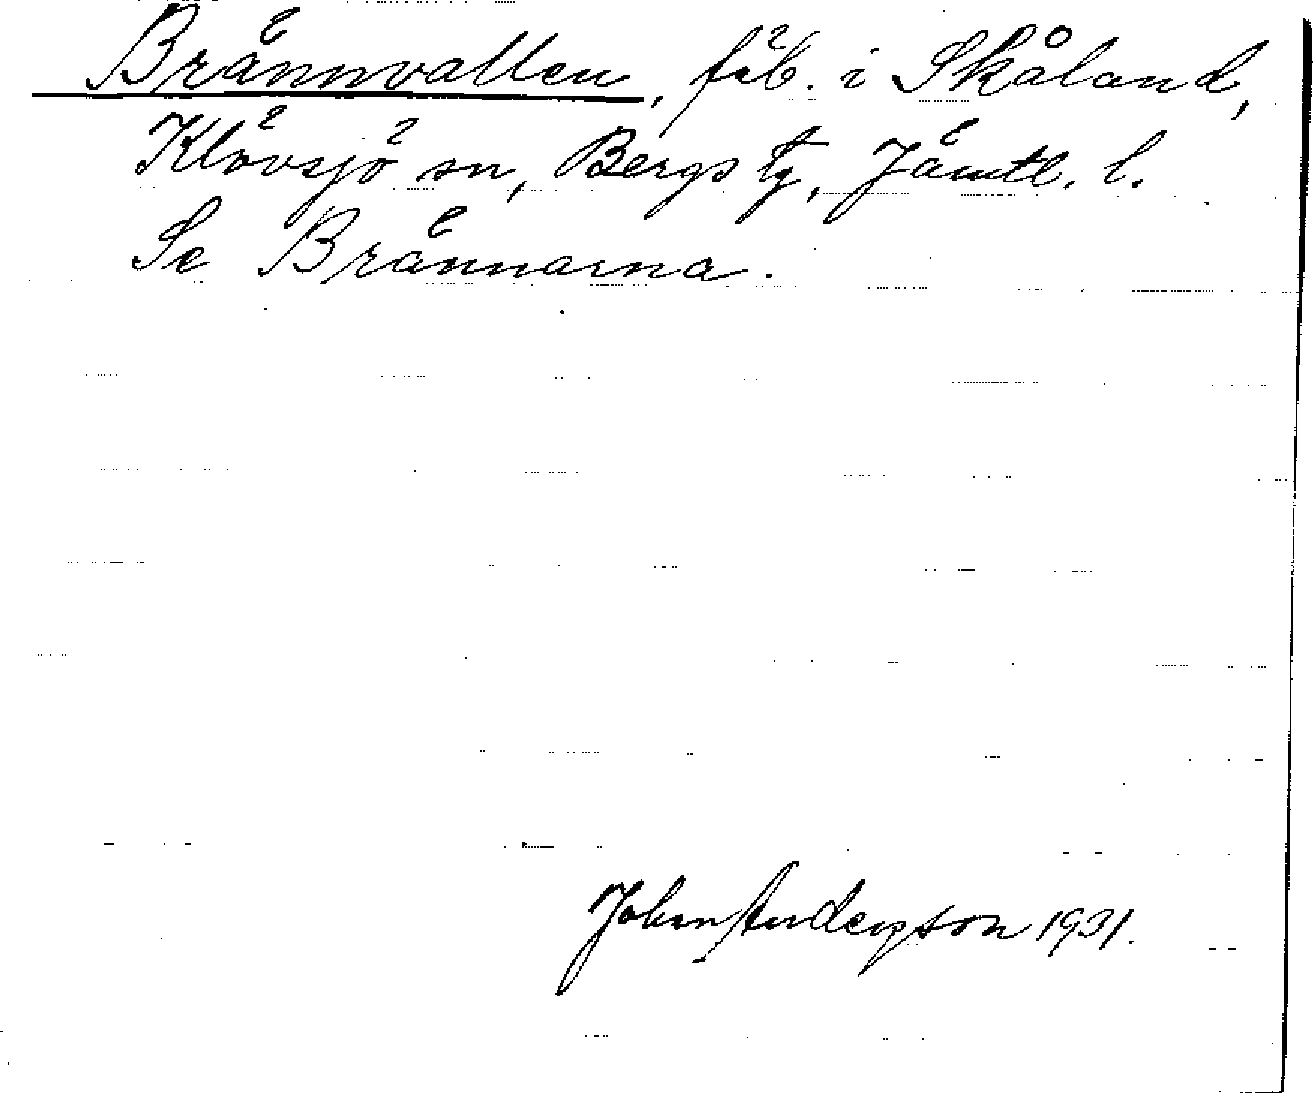 Brännvallen, fäb. i Skåland,
Klövsjö sn, Bergs tg, Jämtl. l.
Se Brännarna.
Johan Andersson 1931.